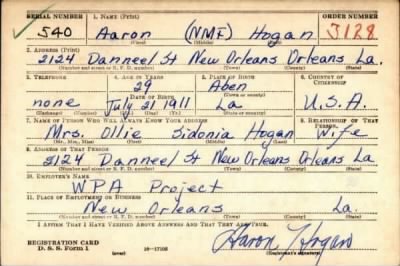 SERIAL NUMBER 1. NAME (Print) ORDER NUMBER
540 Aaron (NMI) Hogan 3128
(First) (Middle) (Last)
2. ADDRESS (Print)
2124 Danneel St New Orleans Orleans La.
(Number and street or R. F. D. number) (Town) (County) (State)
3. TELEPHONE 4. AGE IN YEARS 5. PLACE OF BIRTH 6. COUNTRY OF CITIZENSHIP
29 Aben
DATE OF BIRTH (Town or county)
none July 21 1911 La U.S.A.
(Exchange) (Number) (Mo.) (Day) (Yr.) (State or country)
7. NAME OF PERSON WHO WILL ALWAYS KNOW YOUR ADDRESS 8. RELATIONSHIP OF THAT PERSON
Mrs. Ollie Sidonia Hogan Wife
(Mr., Mrs., Miss) (First) (Middle) (Last)
9. ADDRESS OF THAT PERSON
2124 Danneel St New Orleans Orleans La
(Number and street or R. F. D. number) (Town) (County) (State)
10. EMPLOYER'S NAME
WPA Project
11. PLACE OF EMPLOYMENT OR BUSINESS
New Orleans La.
(Number and street or R. F. D. number) (Town) (County) (State)
I AFFIRM THAT I HAVE VERIFIED ABOVE ANSWERS AND THAT THEY ARE TRUE.
REGISTRATION CARD
D. S. S. Form 1 (over) 16-17105 Aaron Hogan
(Registrant's signature)